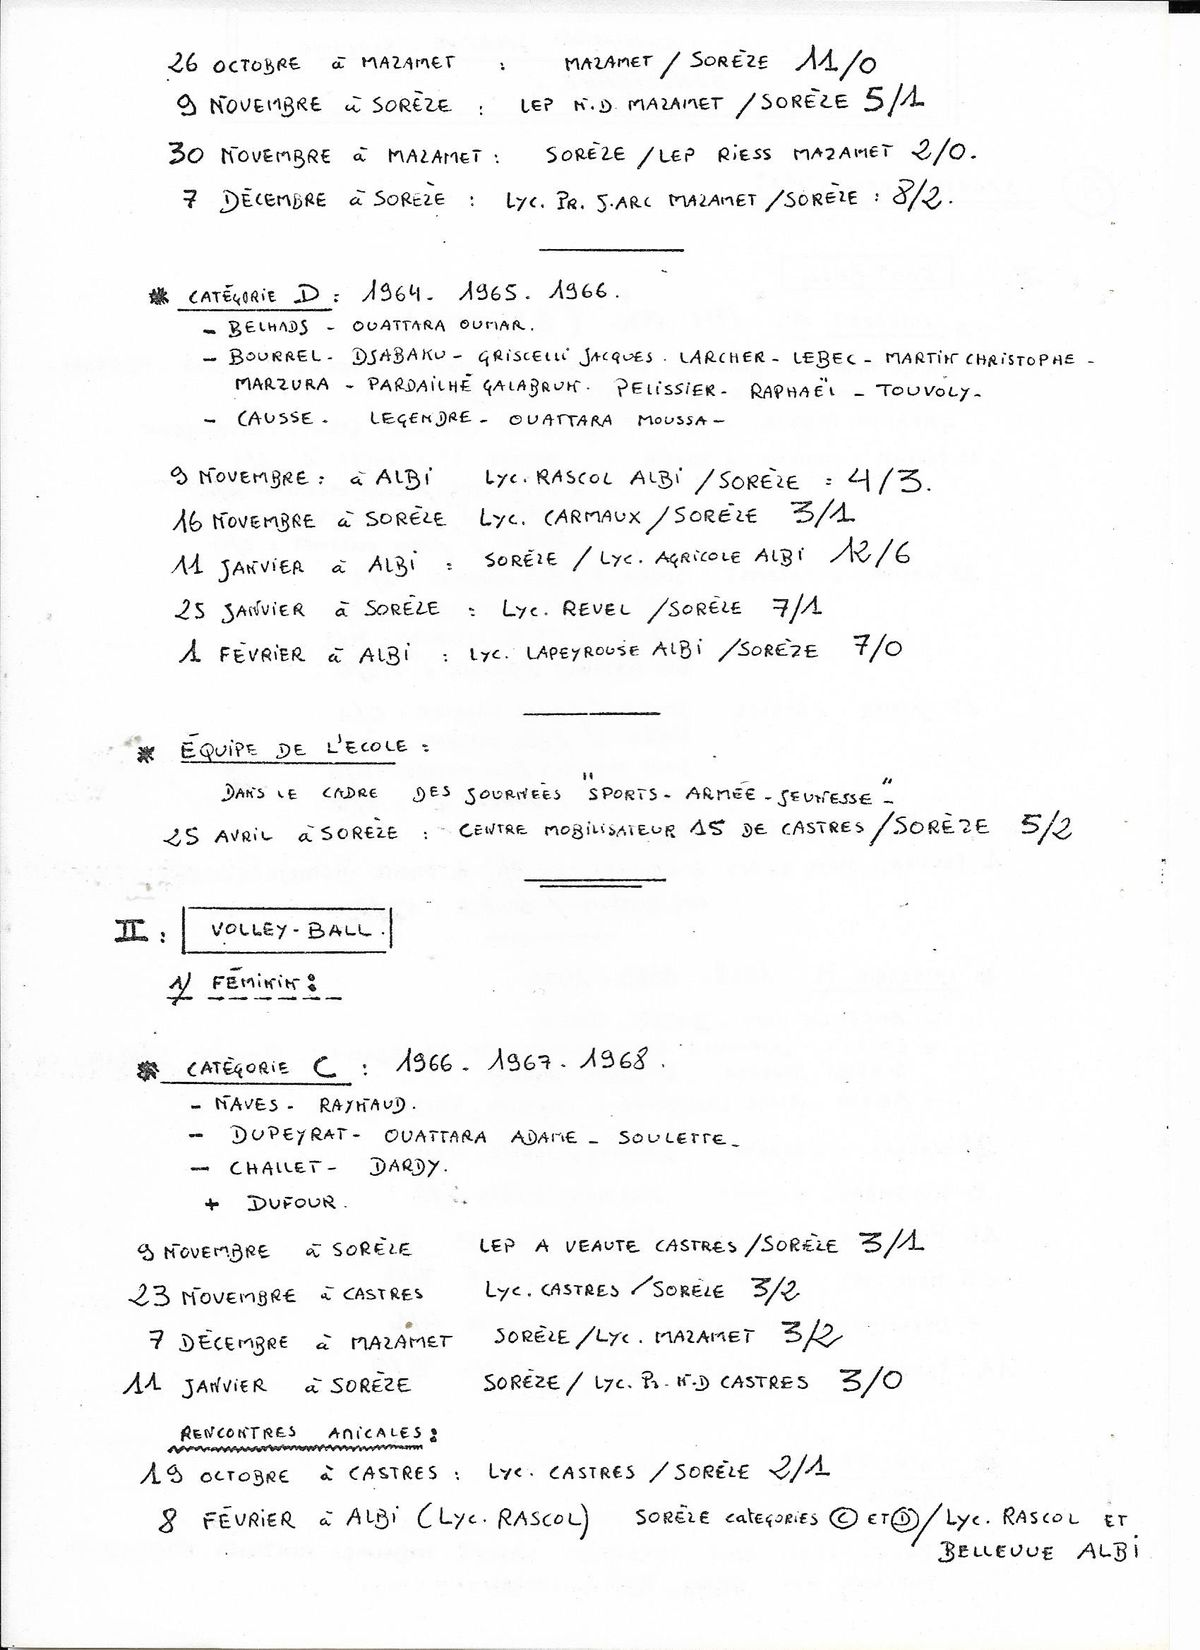 26 OCTOBRE à MAZAMET : MAZAMET / SORÈZE 11/0
9 NOVEMBRE à SORÈZE : LEP N.D MAZAMET / SORÈZE 5/1
30 NOVEMBRE à MAZAMET : SORÈZE / LEP RIESS MAZAMET 2/0.
7 DÉCEMBRE à SORÈZE : LYC. PR. J.ARC MAZAMET / SORÈZE : 8/2.
* CATÉGORIE D : 1964. 1965. 1966.
- BELHADS - OUATTARA OUMAR.
- BOURREL - DJABAKU - GRISCELLI JACQUES. LARCHER - LEBEC - MARTIN CHRISTOPHE -
MARZURA - PARDAILHÉ GALABRUN. PELISSIER - RAPHAËL - TOUVOLY -
- CAUSSE. LEGENDRE - OUATTARA MOUSSA -
9 NOVEMBRE : à ALBI LYC. RASCOL ALBI / SORÈZE : 4/3.
16 NOVEMBRE à SORÈZE LYC. CARMAUX / SORÈZE 3/1
11 JANVIER à ALBI : SORÈZE / LYC. AGRICOLE ALBI 12/6
25 JANVIER à SORÈZE : LYC. REVEL / SORÈZE 7/1
1 FÉVRIER à ALBI : LYC. LAPEYROUSE ALBI / SORÈZE 7/0
* ÉQUIPE DE L'ECOLE :
DANS LE CADRE DES JOURNÉES "SPORTS - ARMÉE - JEUNESSE" -
25 AVRIL à SORÈZE : CENTRE MOBILISATEUR 15 DE CASTRES / SORÈZE 5/2
II : VOLLEY - BALL.
1/ FÉMININ :
* CATÉGORIE C : 1966. 1967. 1968.
- NAVES - RAYNAUD.
- DUPEYRAT - OUATTARA ADAME - SOULETTE -
- CHALLET - DARDY.
+ DUFOUR.
9 NOVEMBRE à SORÈZE LEP A VEAUTE CASTRES / SORÈZE 3/1
23 NOVEMBRE à CASTRES LYC. CASTRES / SORÈZE 3/2
7 DÉCEMBRE à MAZAMET SORÈZE / LYC. MAZAMET 3/2
11 JANVIER à SORÈZE SORÈZE / LYC. Pr. N.D CASTRES 3/0
RENCONTRES AMICALES :
19 OCTOBRE à CASTRES : LYC. CASTRES / SORÈZE 2/1
8 FÉVRIER à ALBI (LYC. RASCOL) SORÈZE CATEGORIES Ⓒ ET Ⓓ / LYC. RASCOL ET
BELLEVUE ALBI